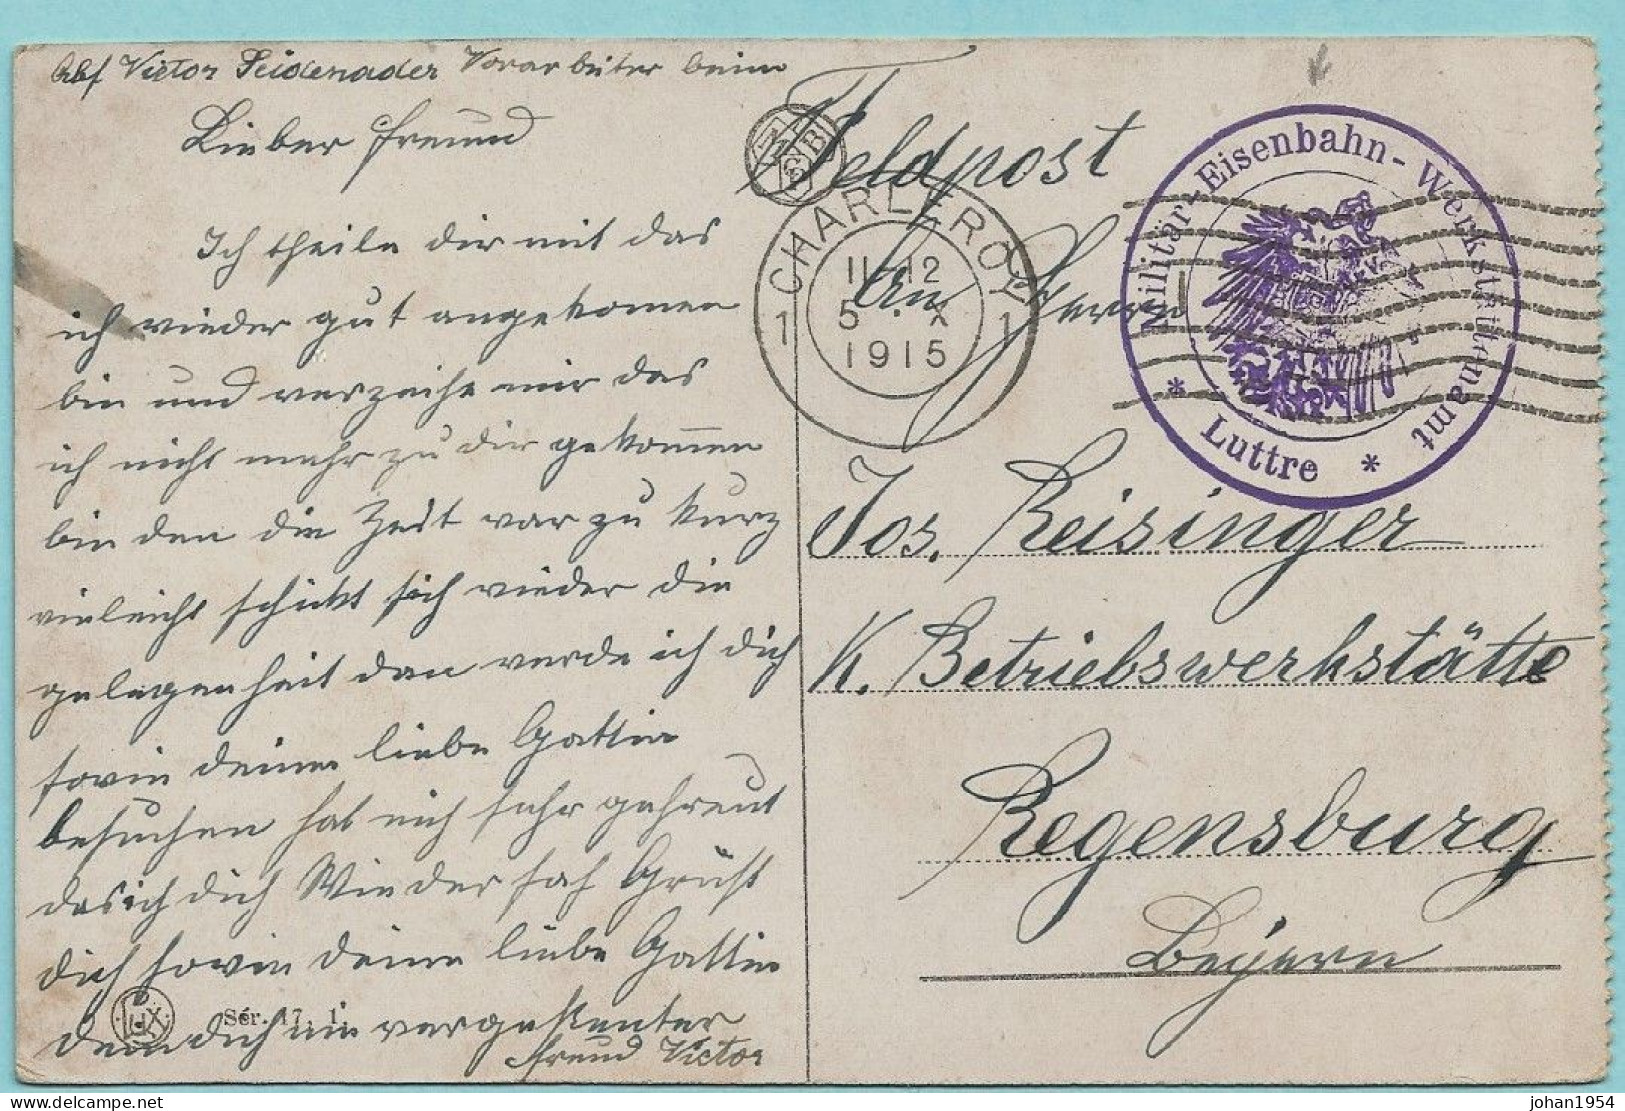 Abs Victor Seidenader Vorarbeiter beim
Lieber Freund
Ich theile dir mit das
ich wieder gut angekomen
bin und verzeihe mir das
ich nicht mehr zu dir gekom̅en
bin den die Zeit war zu kurz
vieleicht schickt sich wieder die
gelegenheit dan werde ich dich
sowie deine liebe Gattin
besuchen hat mich sehr gefreut
das ich dich Wieder sah Grüst
dich sowie deine liebe Gattin
dein dich nie vergessenter
Freund Victor
Sér. 17. 1.
LUX
Feldpost
CHARLEROY
1 1
11-12
5 . X
1915
Militär-Eisenbahn-Werkstättenamt
* Luttre *
An Herrn
Jos. Reisinger
K. Betriebswerkstätte
Regensburg
Beyern
delcampe.net
johan1954